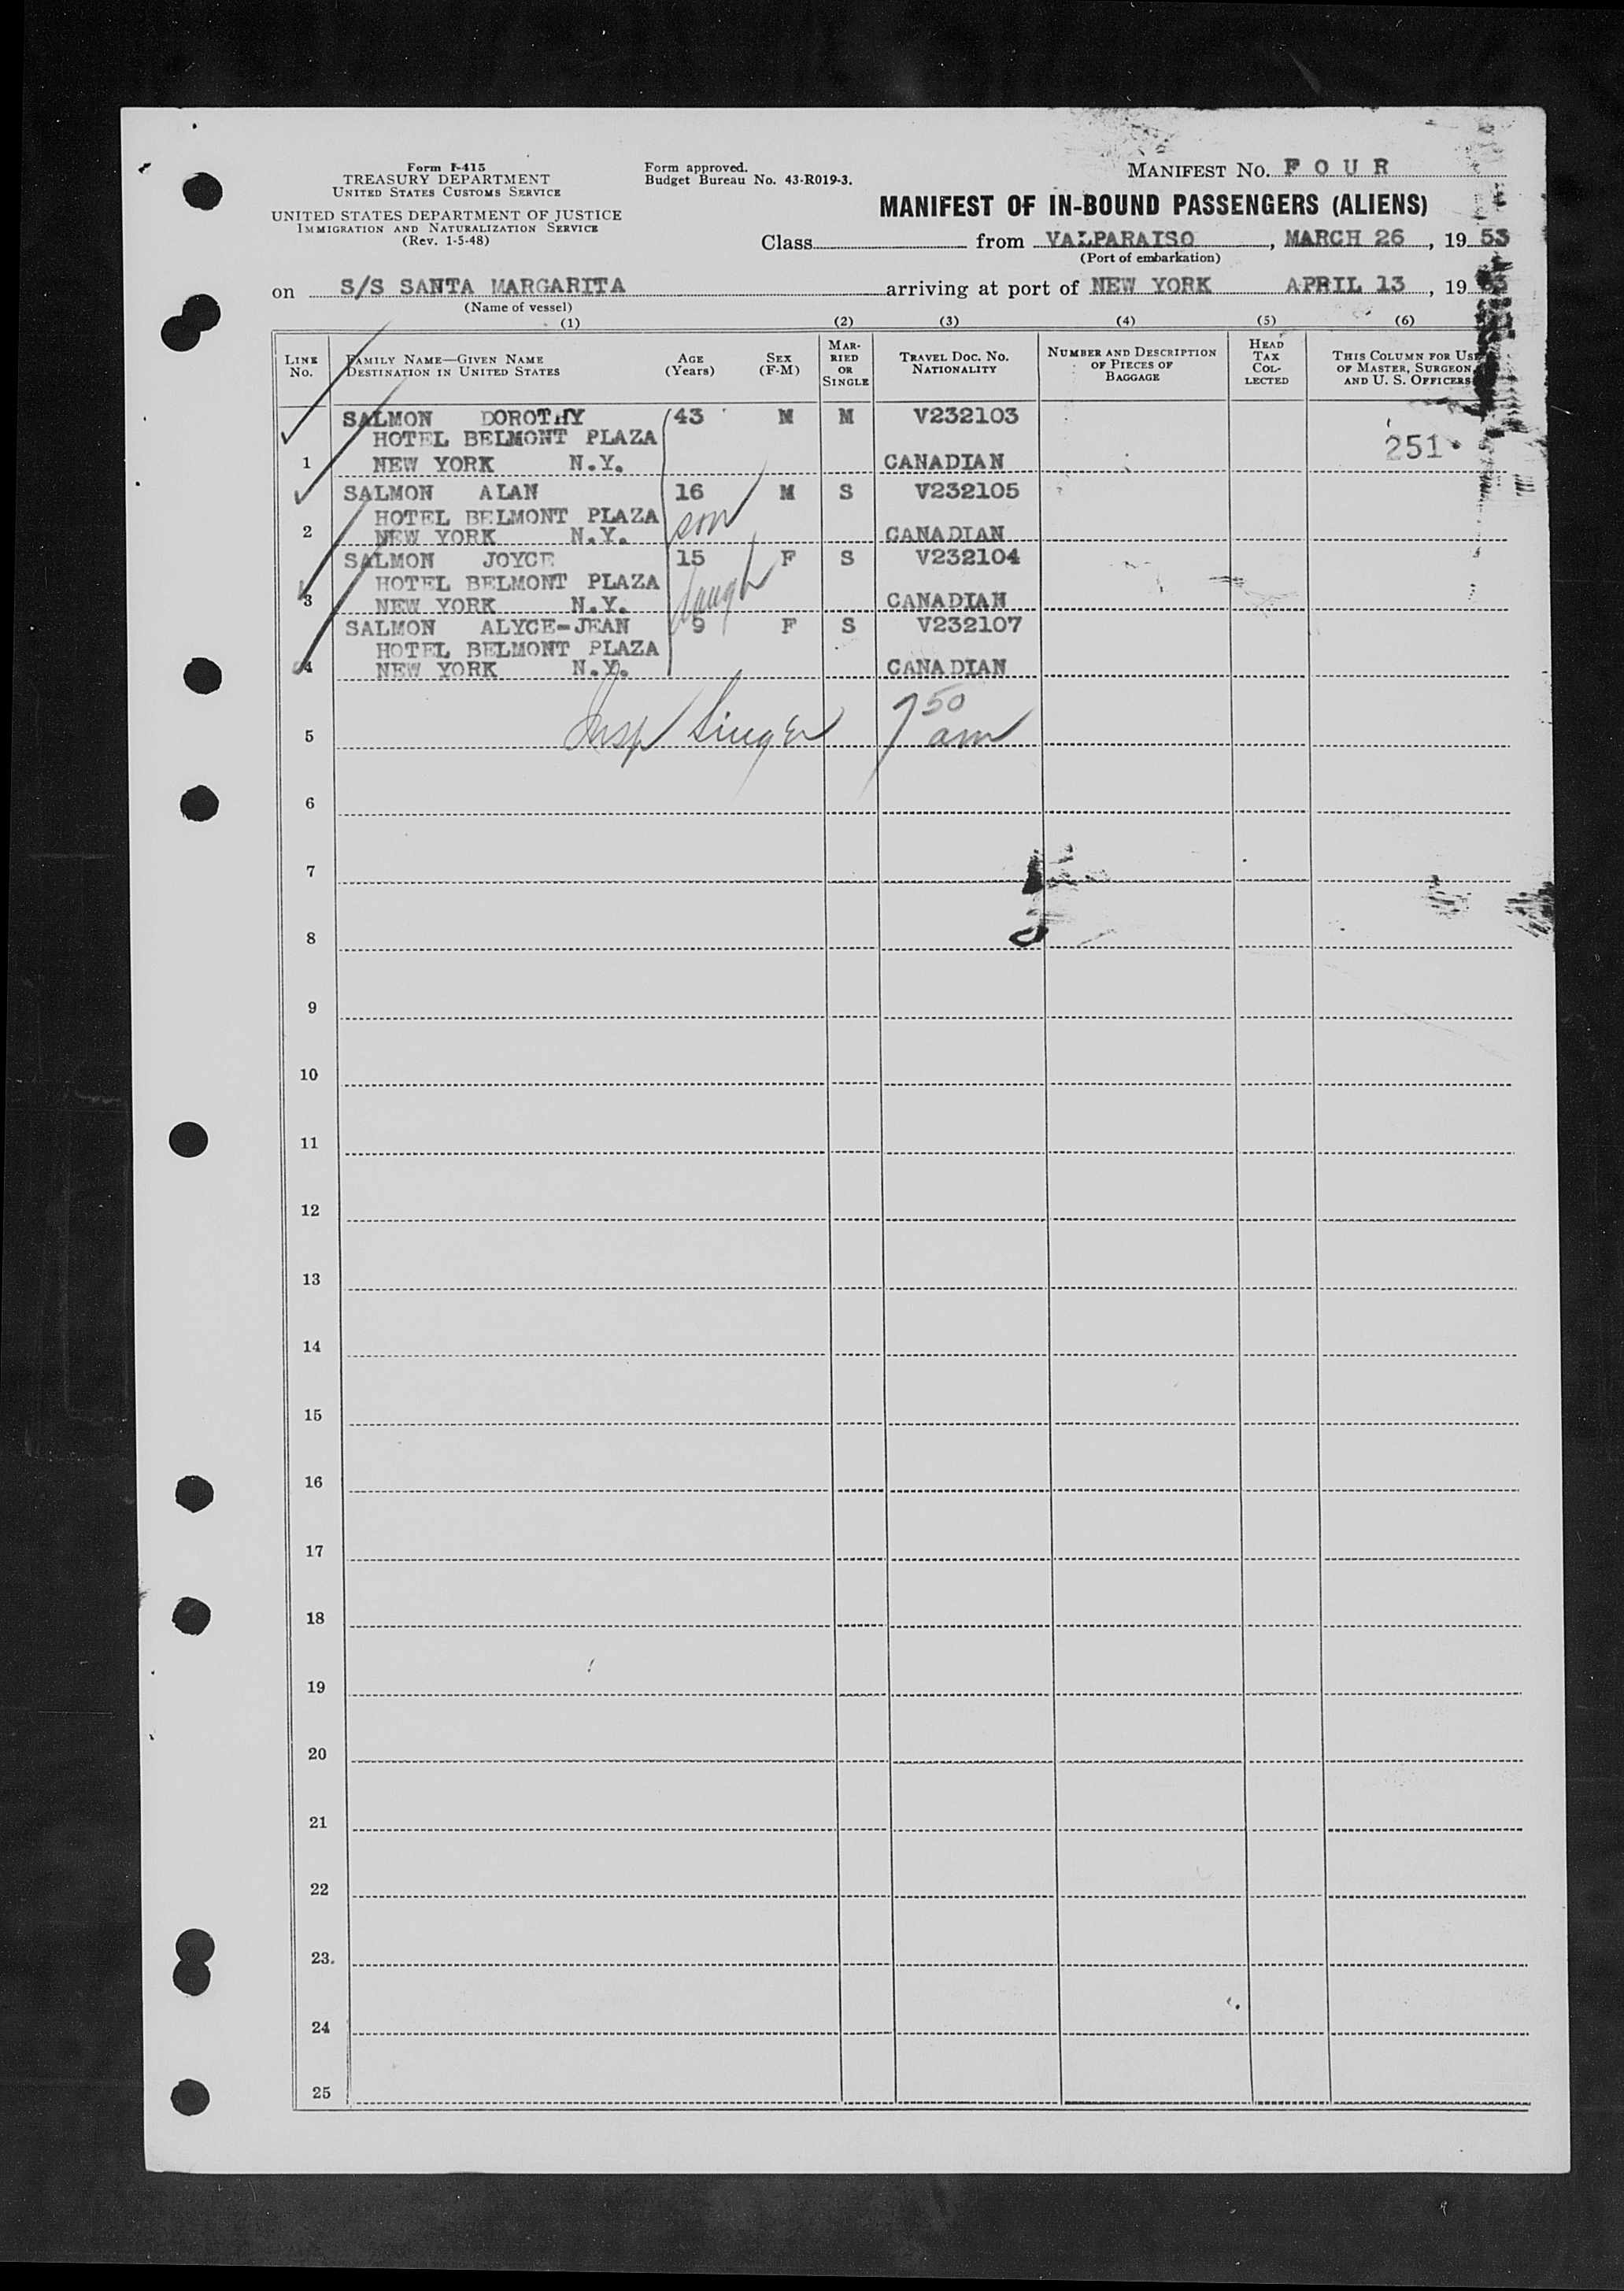 Form I-415
TREASURY DEPARTMENT
UNITED STATES CUSTOMS SERVICE
UNITED STATES DEPARTMENT OF JUSTICE
IMMIGRATION AND NATURALIZATION SERVICE
(Rev. 1-5-48)
Form approved.
Budget Bureau No. 43-R019-3.
MANIFEST NO. FOUR
MANIFEST OF IN-BOUND PASSENGERS (ALIENS)
Class from VALPARAISO, MARCH 26, 1953
(Port of embarkation)
on S/S SANTA MARGARITA arriving at port of NEW YORK APRIL 13, 19
(Name of vessel)
(1) (2) (3) (4) (5) (6)
LINE NO.
FAMILY NAME—GIVEN NAME
DESTINATION IN UNITED STATES
AGE (Years)
SEX (F-M)
MARRIED OR SINGLE
TRAVEL DOC. NO.
NATIONALITY
NUMBER AND DESCRIPTION OF PIECES OF BAGGAGE
HEAD TAX COLLECTED
THIS COLUMN FOR USE OF MASTER, SURGEON, AND U. S. OFFICERS
SALMON DOROTHY 43 M M V232103
HOTEL BELMONT PLAZA 251
1 NEW YORK N.Y. CANADIAN
SALMON ALAN 16 M S V232105
HOTEL BELMONT PLAZA son
2 NEW YORK N.Y. CANADIAN
SALMON JOYCE 15 F S V232104
HOTEL BELMONT PLAZA daugh
3 NEW YORK N.Y. CANADIAN
SALMON ALYCE-JEAN 9 F S V232107
HOTEL BELMONT PLAZA
4 NEW YORK N.Y. CANADIAN
5 Insp Singer 7 50 am
6
7
8
9
10
11
12
13
14
15
16
17
18
19
20
21
22
23
24
25